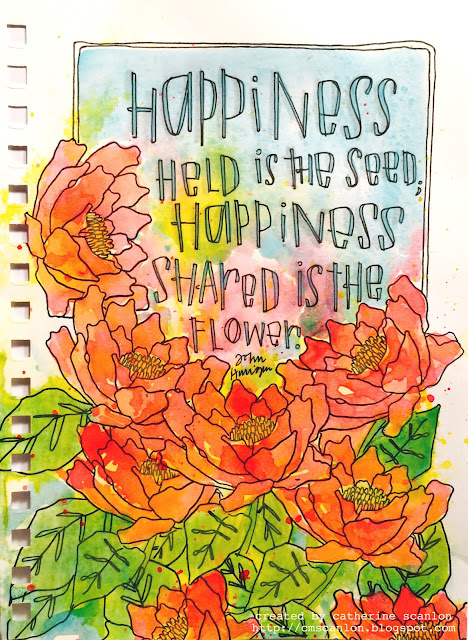 HappiNess
HeLD is the SeeD;
HappiNess
SHaReD is the
FLoweR.
John
Harrigan
created by catherine scanlon
http://cmscanlon.blogspot.com